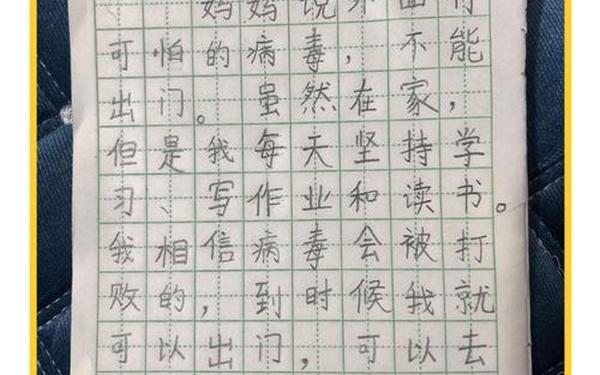 妈妈说外面有
可怕的病毒，不能
出门。虽然在家，
但是我每天坚持学
习、写作业和读书。
我相信病毒会被打
败的，到时候我就
可以出门，可以去